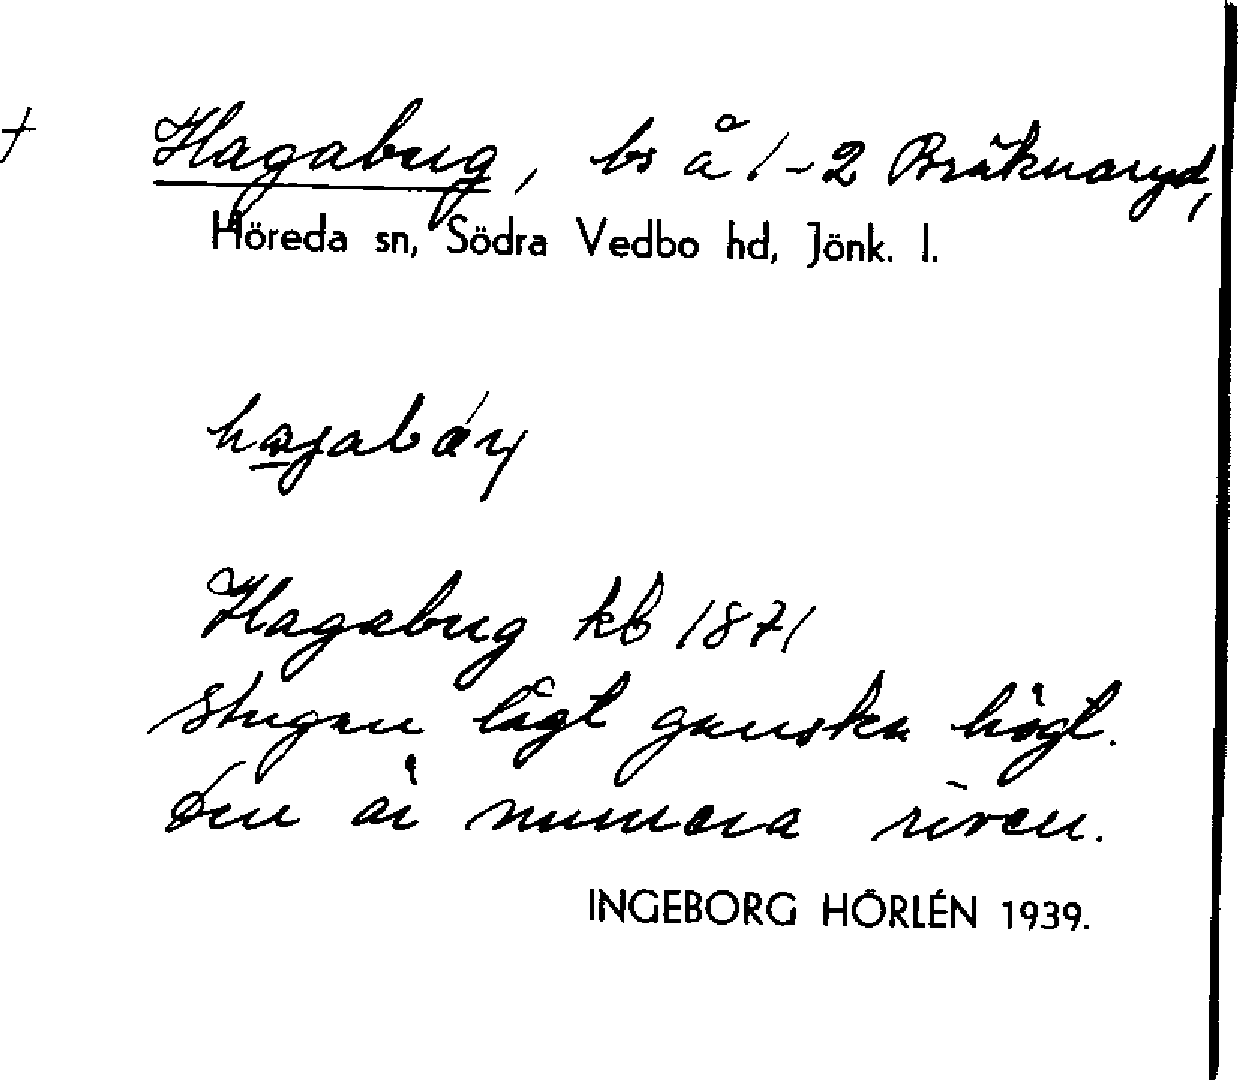 † Hagaberg, bs å 1-2 Bräknaryd,
Höreda sn, Södra Vedbo hd, Jönk. l.
Hagaberg kb 1871
Stugan lågt ganska högt.
Den är numera riven.
INGEBORG HÖRLÉN 1939.